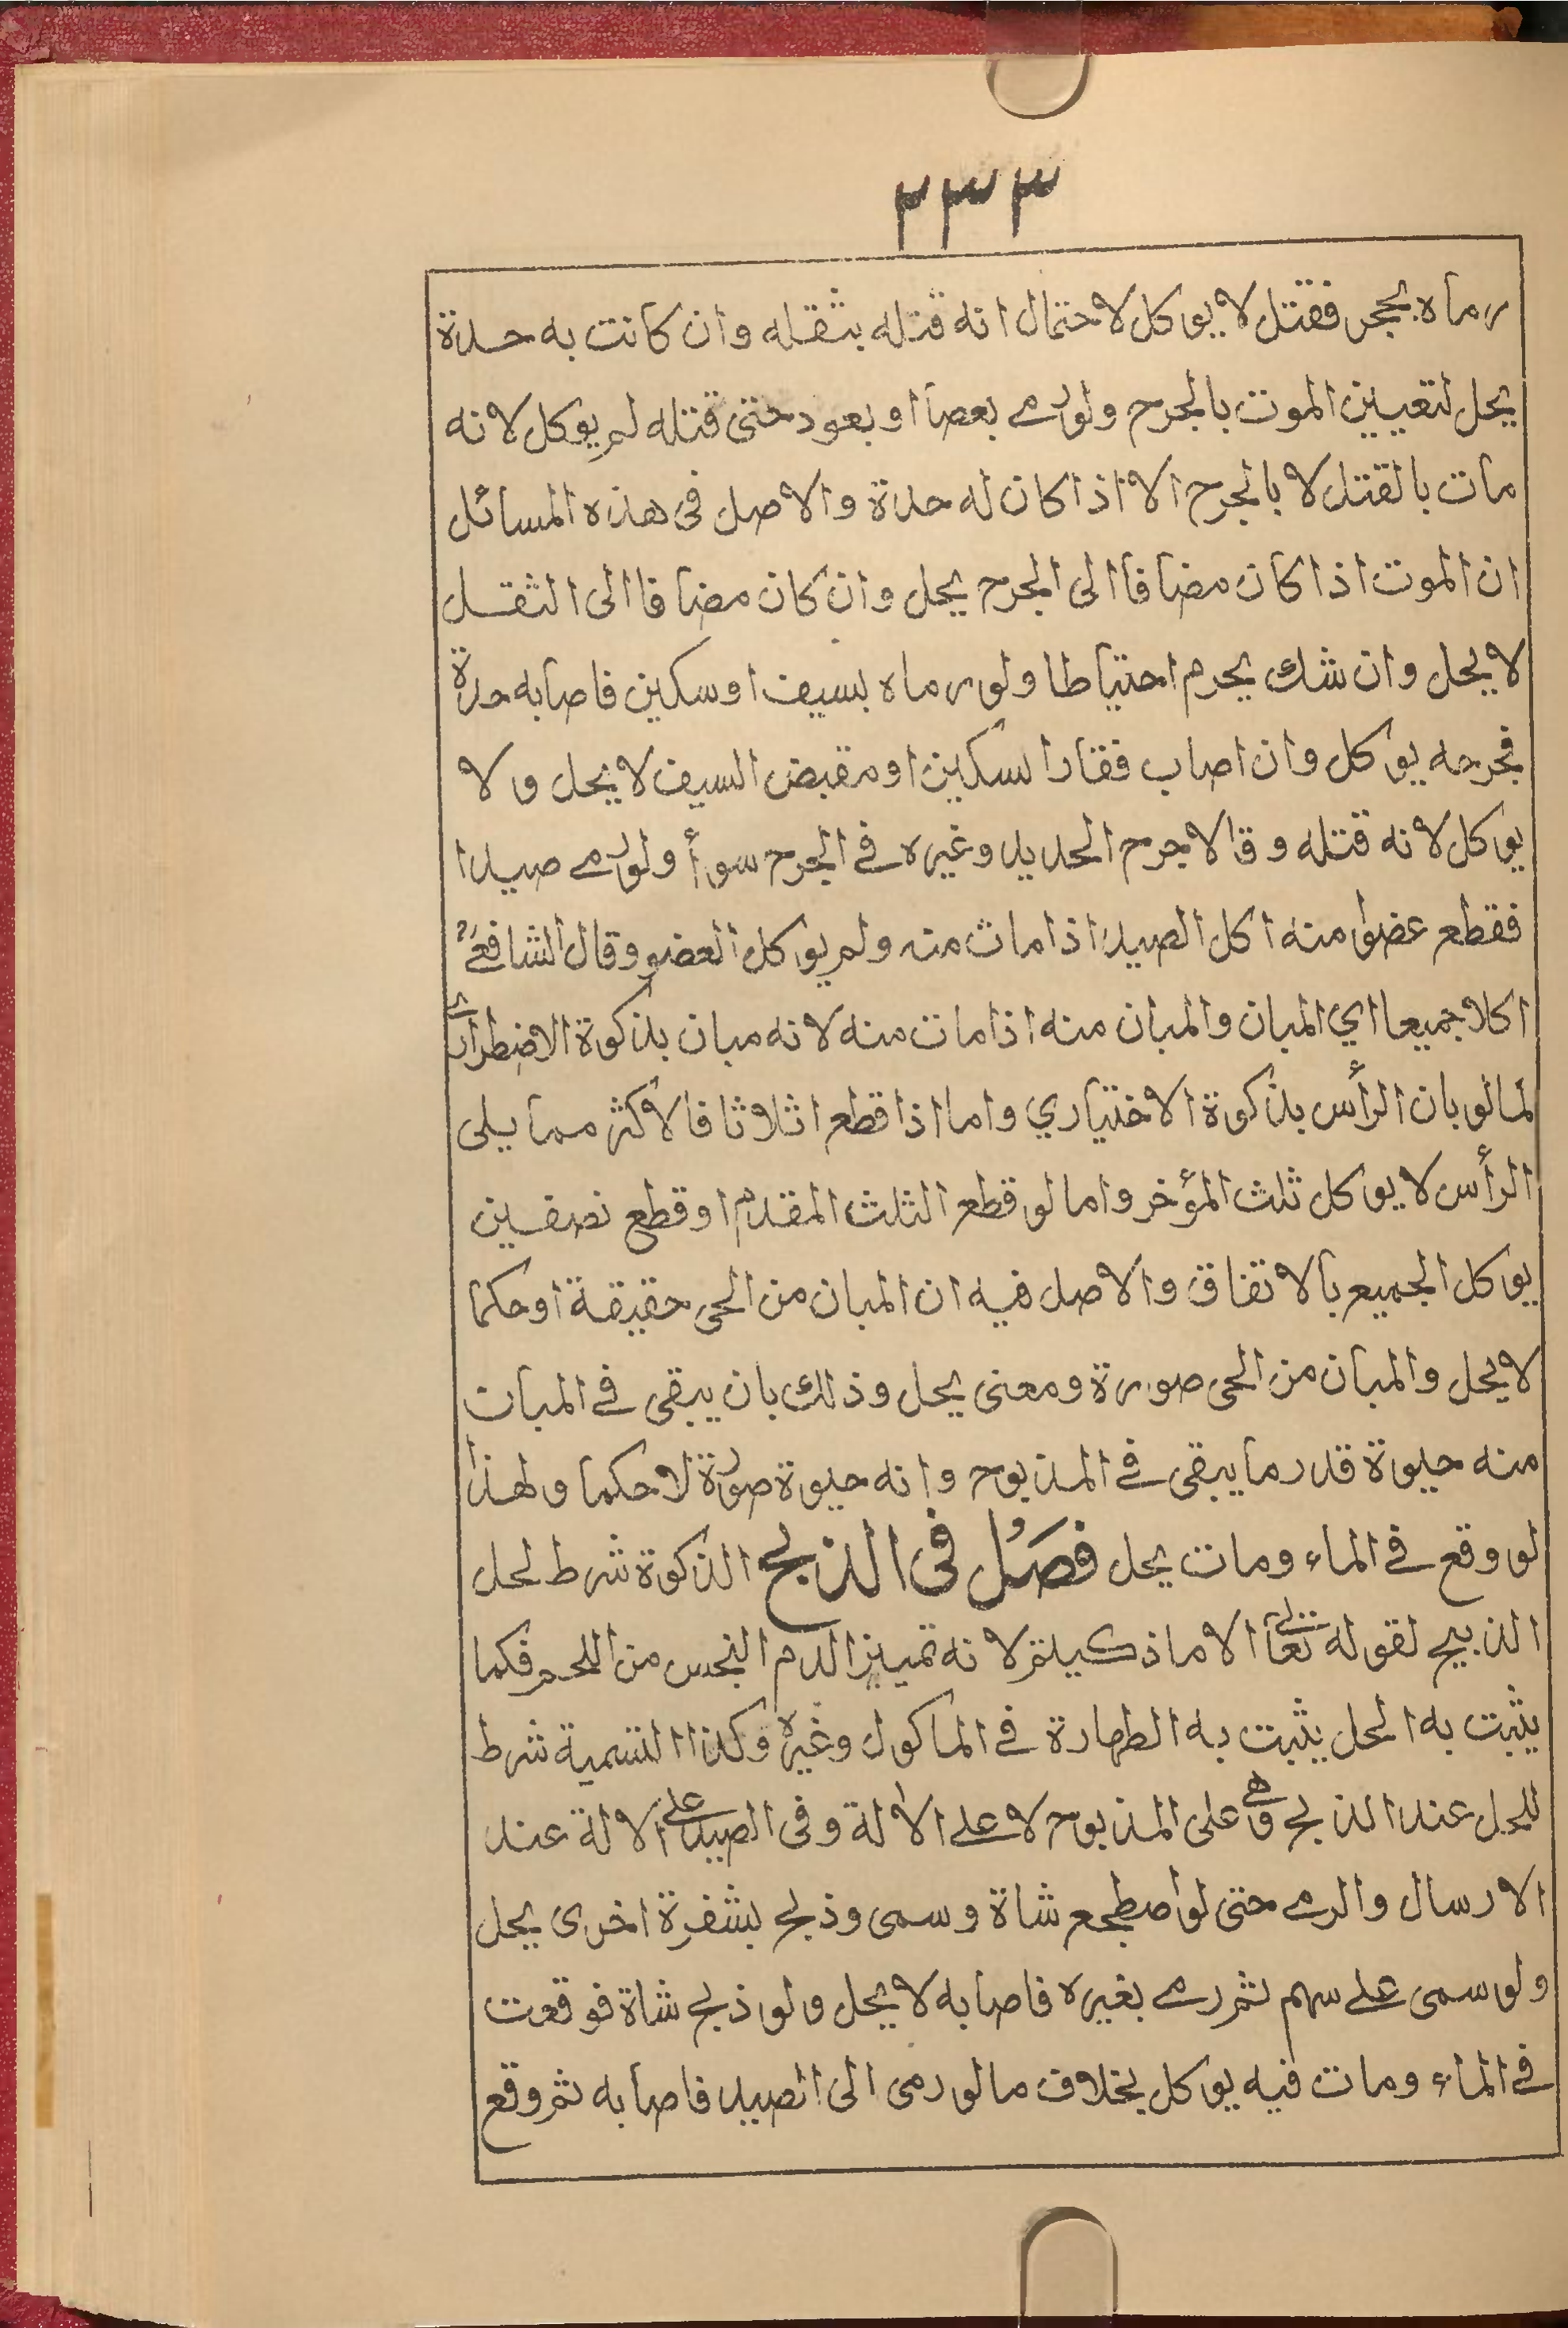 ٣٣٣
رماه بحجر فقتل لا يوكل لاحتمال انه قتله بثقله وان كانت به حدة
يحل لتعيين الموت بالجرح ولو رمے بعصا او بعود حتى قتله لم يوكل لانه
مات بالقتل لا بالجرح الا اذا كان له حدة والاصل فى هذه المسائل
ان الموت اذا كان مضافا الى الجرح يحل وان كان مضافا الى الثقل
لا يحل وان شك يحرم احتياطا ولو رماه بسيف او سكين فاصابه حدة
فجرحه يوكل وان اصاب فقار السكين او مقبض السيف لا يحل ولا
يوكل لانه قتله وقالا جرح الحديد وغيره فے الجرح سوأ ولو رمے صيدا
فقطع عضوا منه اكل الصيد اذا مات منه ولم يوكل العضو وقال الشافعےؒ
اكلا جميعا اي المبان والمبان منه اذا مات منه لانه مبان بذكوة الاضطرارے
لما لو بان الرأس بذكوة الاختياري واما اذا قطع اثلاثا فالاكثر مما يلى
الرأس لا يوكل ثلث المؤخر واما لو قطع الثلث المقدم او قطع نصفين
يوكل الجميع بالاتفاق والاصل فيه ان المبان من الحى حقيقة او حكما
لا يحل والمبان من الحى صورة ومعنى يحل وذلك بان يبقى فے المبان
منه حيوة قدر ما يبقى فے المذبوح وانه حيوة صورة لا حكما ولهذا
لو وقع فے الماء ومات يحل فصَل فى الذبح الذكوة شرط لحل
الذبيح لقوله تعالى الا ما ذكيتم لانه تمييز الدم النجس من اللحم فكما
يثبت به الحل يثبت به الطهارة فے الماكول وغيره وكذا التسمية شرط
للحل عند الذبح وهى على المذبوح لا علے الالة وفى الصيد علے الالة عند
الارسال والرمے حتى لو اضطجع شاة وسمى وذبح بشفرة اخرى يحل
ولو سمى علے سهم ثم رمے بغيره فاصابه لا يحل ولو ذبح شاة فوقعت
فے الماء ومات فيه يوكل بخلاف ما لو رمى الى الصيد فاصابه ثم وقع